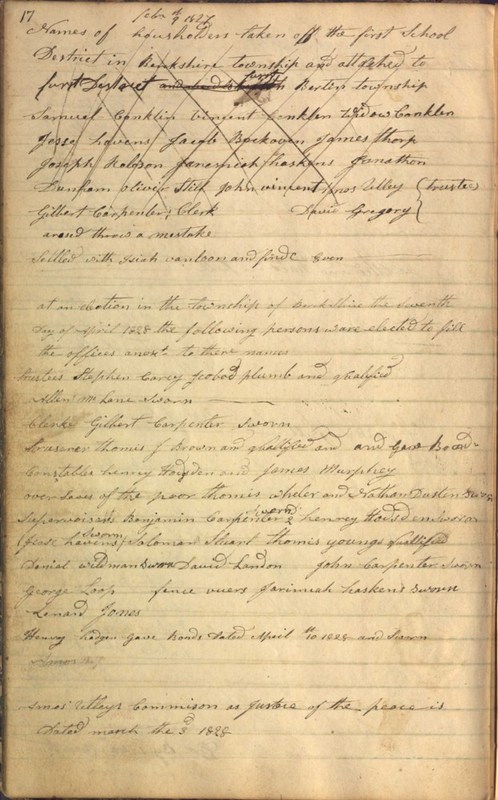 17
febr. 9 1827
Names of housholders taken off the first School
District in Berkshire township and attatched to
furst District and first in Berlin township
Samuel Conklin vinsent Conklen widow Conklen
Jesse havens Jacob Beckoven James thorp
Joseph Robson Jaremiah haskens Jonathon
Dunham oliver Stith John vincent Amos Utley (trustes
Gilbert Carpenter Clerk David Gregory
there is a mestake
Settled with Isiah vanloon and find Even
at an election in the township of Berkshire the seventh
Day of April 1828 the following persons ware elected to fill
the offices to there names
trustees Stephen Carey Jcobod plumb and qhalifid
Allen Mc Lane Sworn
Clerk Gilbert Carpenter Sworn
trasurer thomis J Brown and qhalifed and gave Bond
Constables henry Hodgden and James Murphey
overseaes of the poor thomis and Nathan Dusten Sworn
Supervoisers Benjamin Carpenter Sworn & henrey sworn
Jese havens Sworn Soloman Stuart thomis youngs qhallified
Daniel wildman Sworn David Landon John Carpenter Sworn
George Loop fence vuers Jarimiah haskens Sworn
Lenard Jones
Henry hodgen Gave Bonds Dated April th 10 1828 and Sworn
Amos Utleys Commison as Justice of the peace is
Dated march the 3d 1828